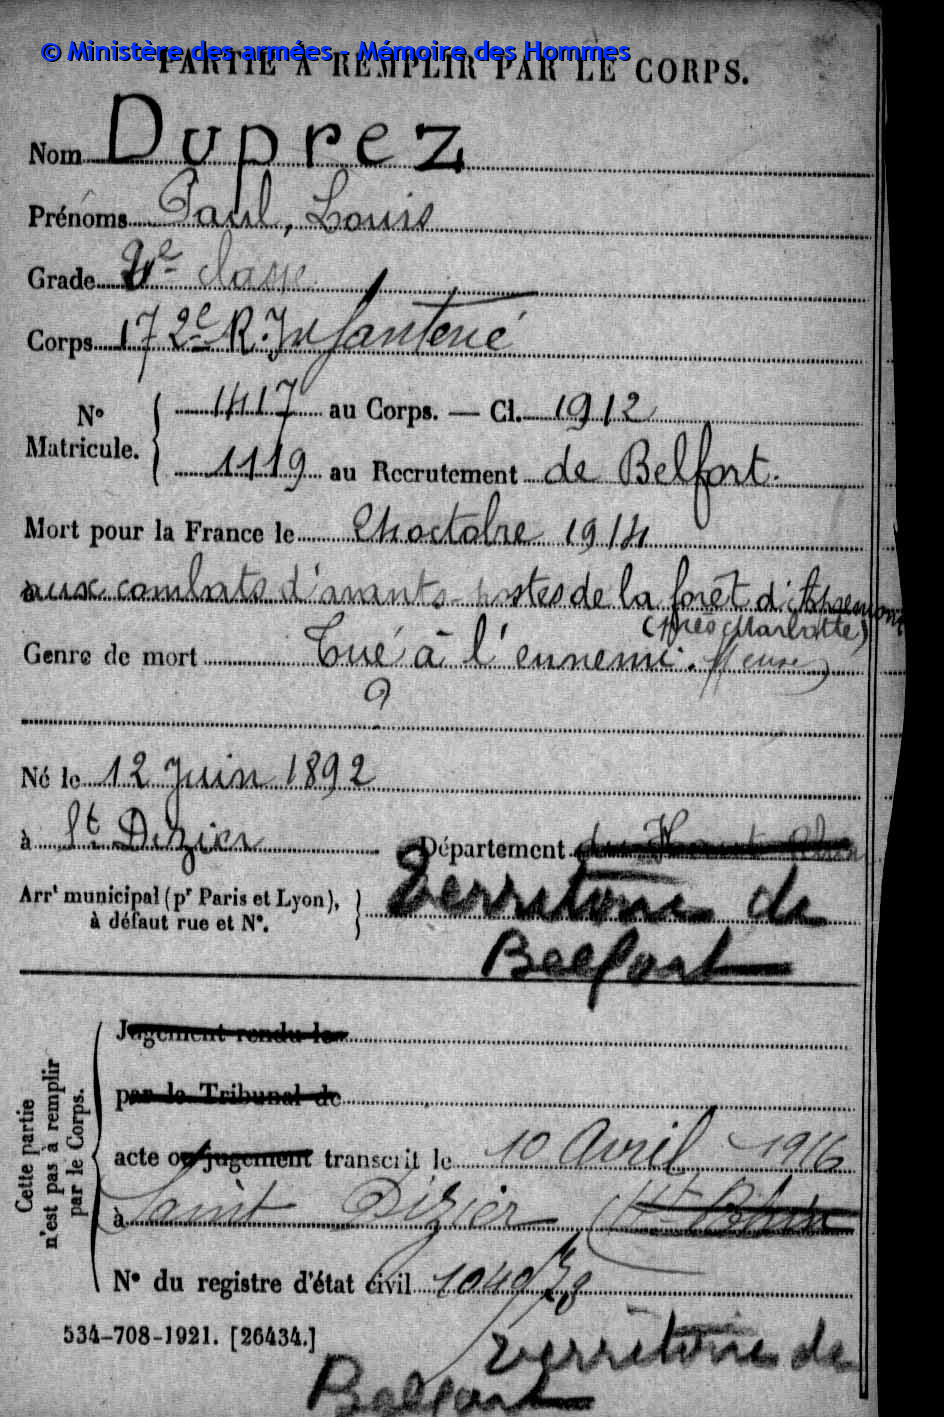 © Ministère des armées - Mémoire des Hommes
PARTIE À REMPLIR PAR LE CORPS.
Nom Duprez
Prénoms Paul, Louis
Grade 2e classe
Corps 172e R. Infanterie
No Matricule. { 1417 au Corps. — Cl. 1912
1119 au Recrutement de Belfort.
Mort pour la France le octobre 1914
aux combats d'avants-postes de la forêt d'Apremont
(près Marbotte)
Genre de mort Tué à l'ennemi. Meuse)
?
Né le 12 Juin 1892
à St Dizier Département du Haut Rhin
Arrt municipal (pr Paris et Lyon), à défaut rue et No. } Territoire de
Belfort
Cette partie n'est pas à remplir par le Corps.
Jugement rendu le
par le Tribunal de
acte ou jugement transcrit le 10 Avril 1916
à Saint Dizier (Ht-Rhin
No du registre d'état civil 1040/
534-708-1921. [26434.]
Territoire de
Belfort